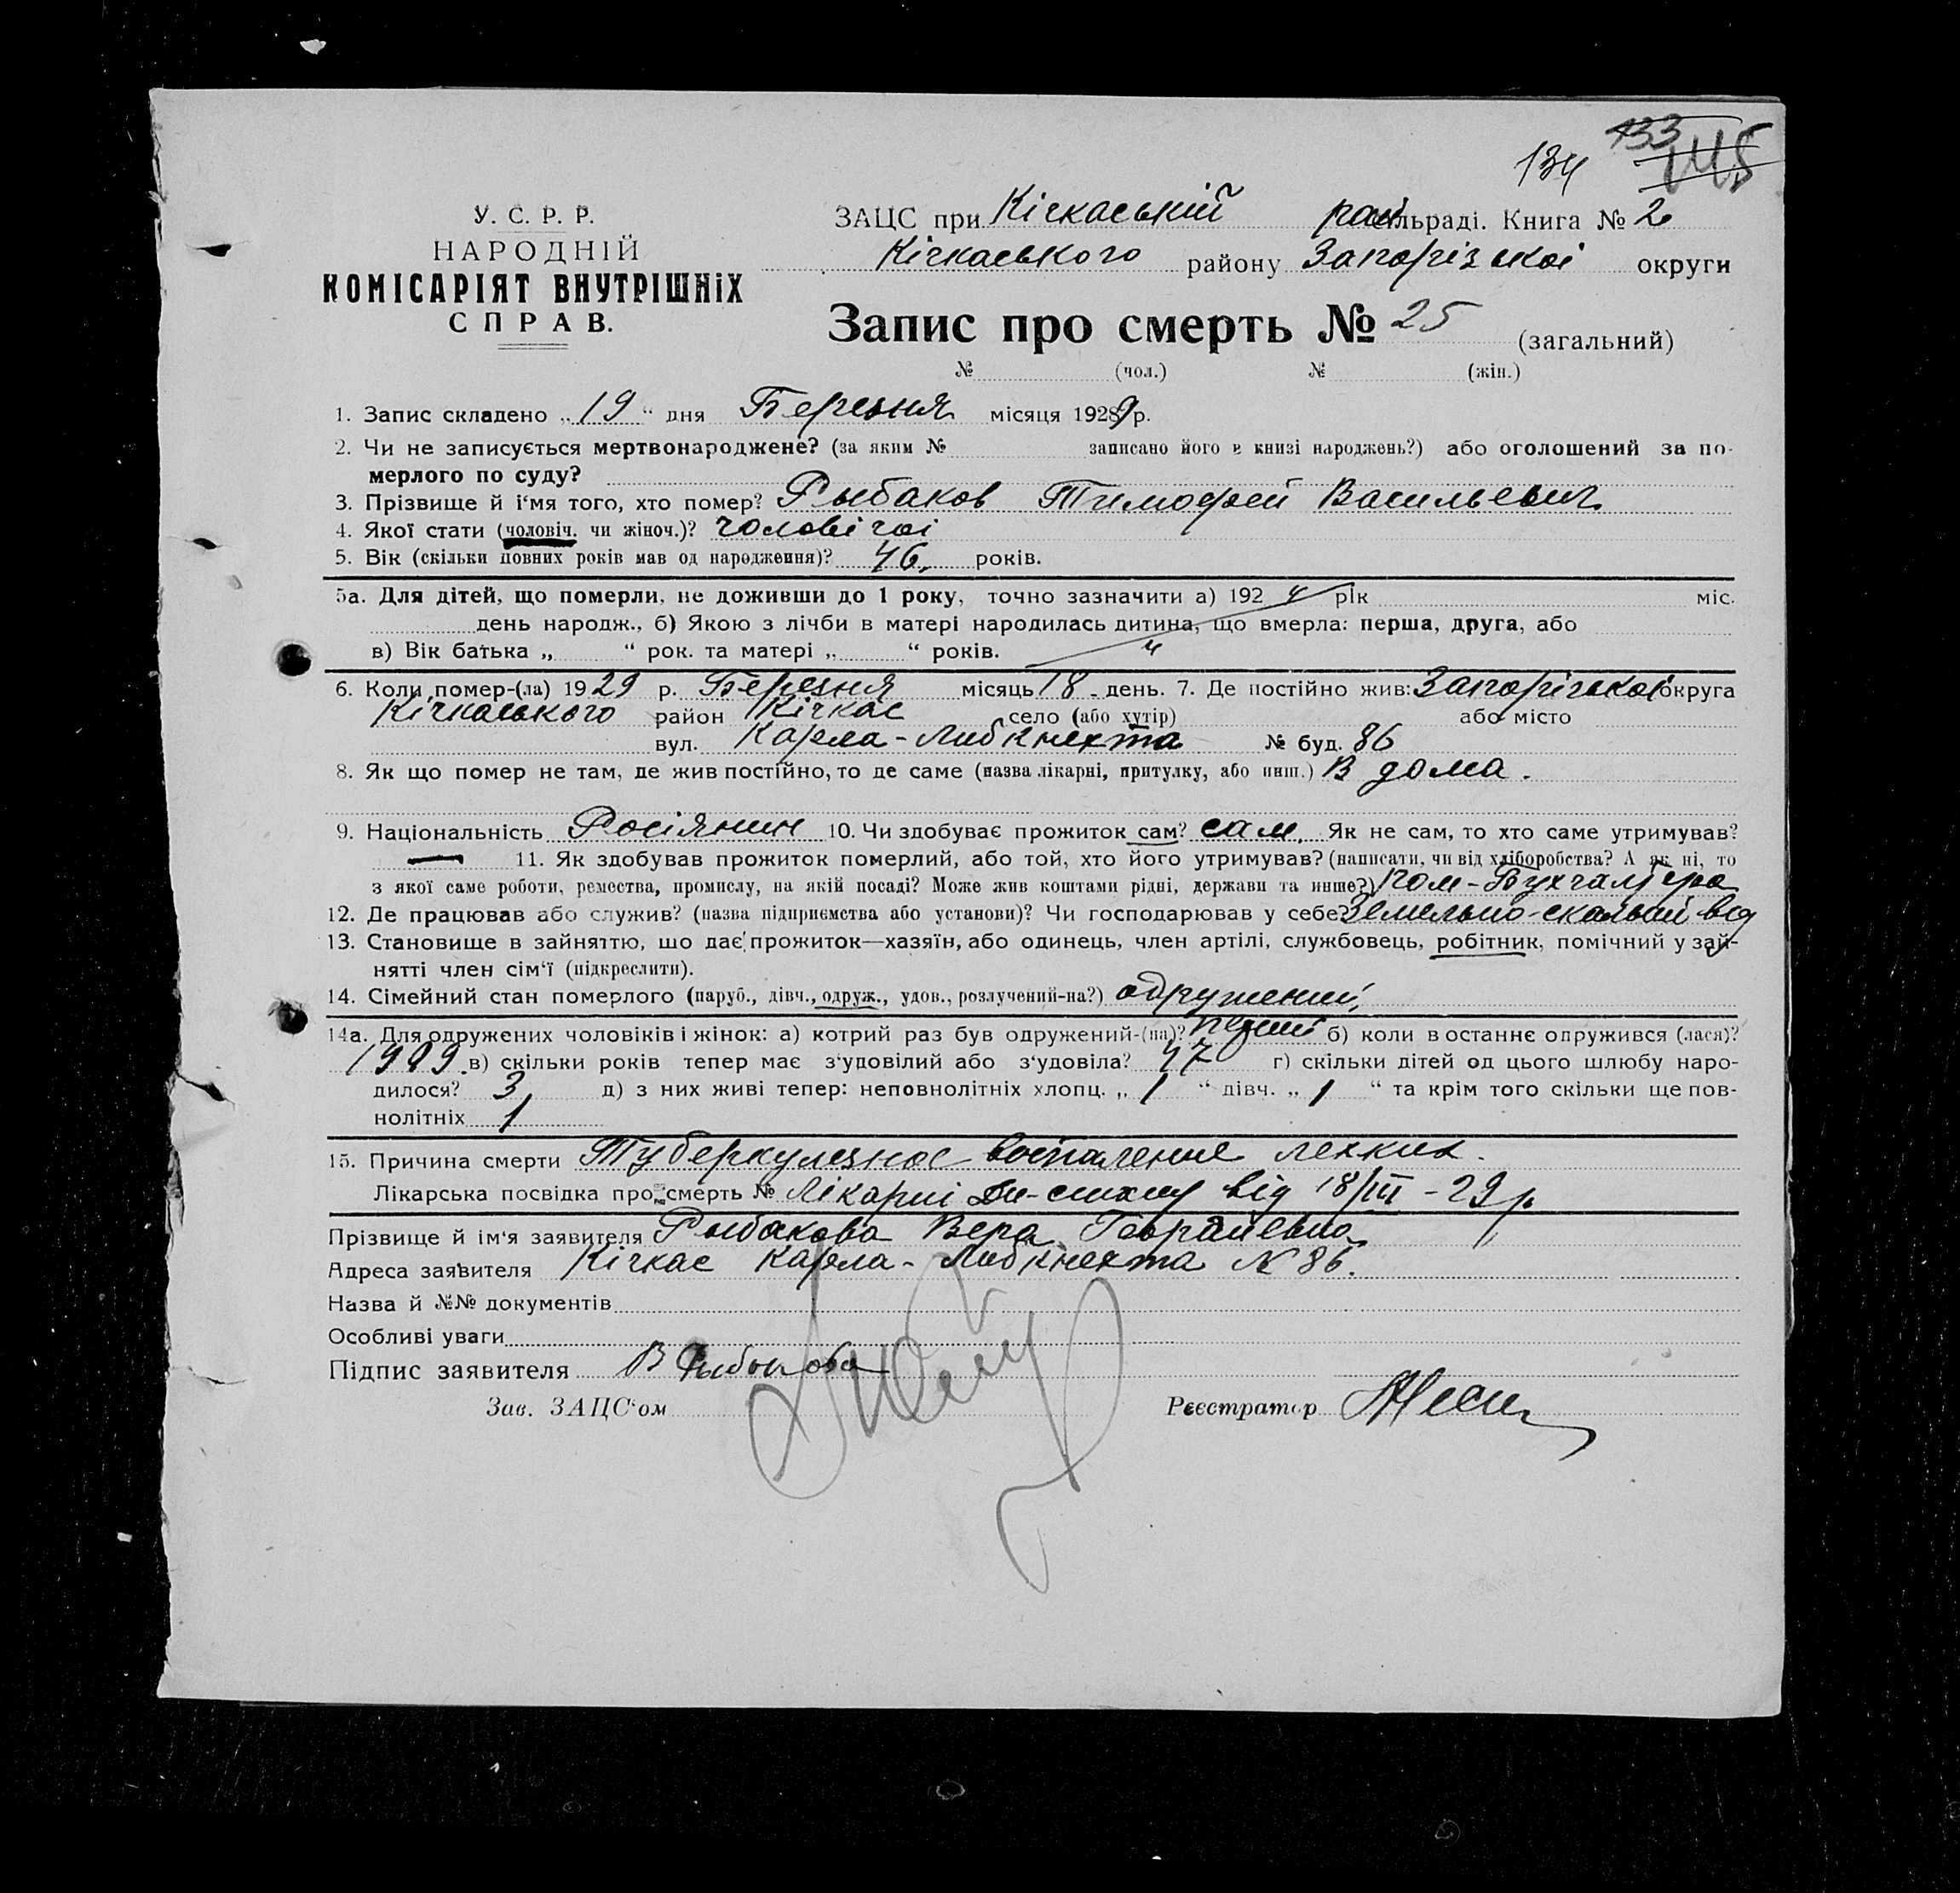 133
134 145
У. С. Р. Р.
НАРОДНІЙ
КОМІСАРІЯТ ВНУТРІШНІХ
СПРАВ.
ЗАЦС при Кічкаський рай сільраді. Книга № 2
Кічкаського району Запорізької округи
Запис про смерть № 25 (загальний)
№ (чол.) № (жін.)
1. Запис складено „ 19 “ дня Березня місяця 1929 р.
2. Чи не записується мертвонароджене? (за яким № записано його в книзі народжень?) або оголошений за по-
мерлого по суду?
3. Прізвище й ім'я того, хто помер? Рыбаков Тимофей Васильевич
4. Якої стати (чоловіч. чи жіноч.)? чоловічої
5. Вік (скільки повних років мав од народження)? 46. років.
5а. Для дітей, що померли, не доживши до 1 року, точно зазначити а) 192 рік міс.
день народж., б) Якою з лічби в матері народилась дитина, що вмерла: перша, друга, або
в) Вік батька „ “ рок. та матері „ “ років.
6. Коли помер-(ла) 1929 р. Березня місяць 18 день. 7. Де постійно жив: Запорізької округа
Кічкаського район Кічкас село (або хутір) або місто
вул. Карла-Либкнехта № буд. 86
8. Як що помер не там, де жив постійно, то де саме (назва лікарні, притулку, або инш.) В дома.
9. Національність Росіянин 10. Чи здобуває прожиток сам? сам. Як не сам, то хто саме утримував?
— 11. Як здобував прожиток померлий, або той, хто його утримував? (написати, чи від хліборобства? А як ні, то
з якої саме роботи, ремества, промислу, на якій посаді? Може жив коштами рідні, держави та инше?) Пом-Бухгалтера
12. Де працював або служив? (назва підприємства або установи)? Чи господарював у себе? Земельно-скальний від
13. Становище в зайняттю, що дає прожиток—хазяїн, або одинець, член артілі, службовець, робітник, помічний у зай-
нятті член сім'ї (підкреслити).
14. Сімейний стан померлого (паруб., дівч., одруж., удов., розлучений-на?) одружений,
14а. Для одружених чоловіків і жінок: а) котрий раз був одружений-(на)? перший б) коли в останнє одружився (лася)?
1909. в) скільки років тепер має з'удовілий або з'удовіла? 47 г) скільки дітей од цього шлюбу наро-
дилося? 3, д) з них живі тепер: неповнолітніх хлопц. „ 1 “ дівч. „ 1 “ та крім того скільки ще пов-
нолітніх 1
15. Причина смерти Туберкулезное воспаление легких.
Лікарська посвідка про смерть № Лікарні від 18/III-29р
Прізвище й ім'я заявителя Рыбакова Вера
Адреса заявителя Кічкас Карла-Либкнехта № 86.
Назва й №№ документів
Особливі уваги
Підпис заявителя В Рыбакова
Зав. ЗАЦС'ом Реєстратор